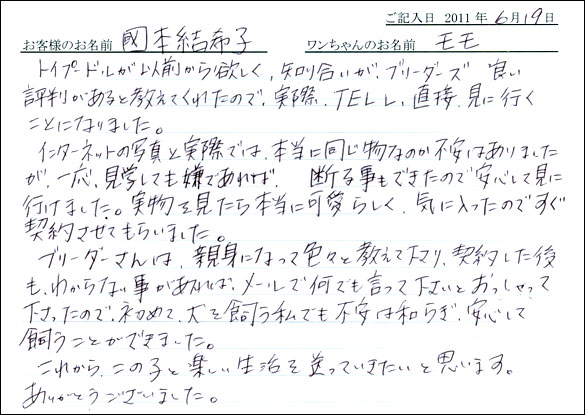 ご記入日 2011年 6月19日
お客様のお名前 國本結希子 ワンちゃんのお名前 モモ
トイプードルが以前から欲しく、知り合いが、ブリーダーズ 良い
評判があると教えてくれたので、実際、TELし、直接、見に行く
ことになりました。
インターネットの写真と実際では、本当に同じ物なのか不安はありました
が、一応、見学しても嫌であれば、断る事もできたので安心して見に
行けました。実物を見たら本当に可愛らしく、気に入ったのですぐ
契約させてもらいました。
ブリーダーさんは、親身になって色々と教えて下さり、契約した後
も、わからない事があれば、メールで何でも言って下さいとおっしゃって
下さったので、初めて、犬を飼う私でも不安は和らぎ、安心して
飼うことができました。
これから、この子と楽しい生活を送っていきたいと思います。
ありがとうございました。